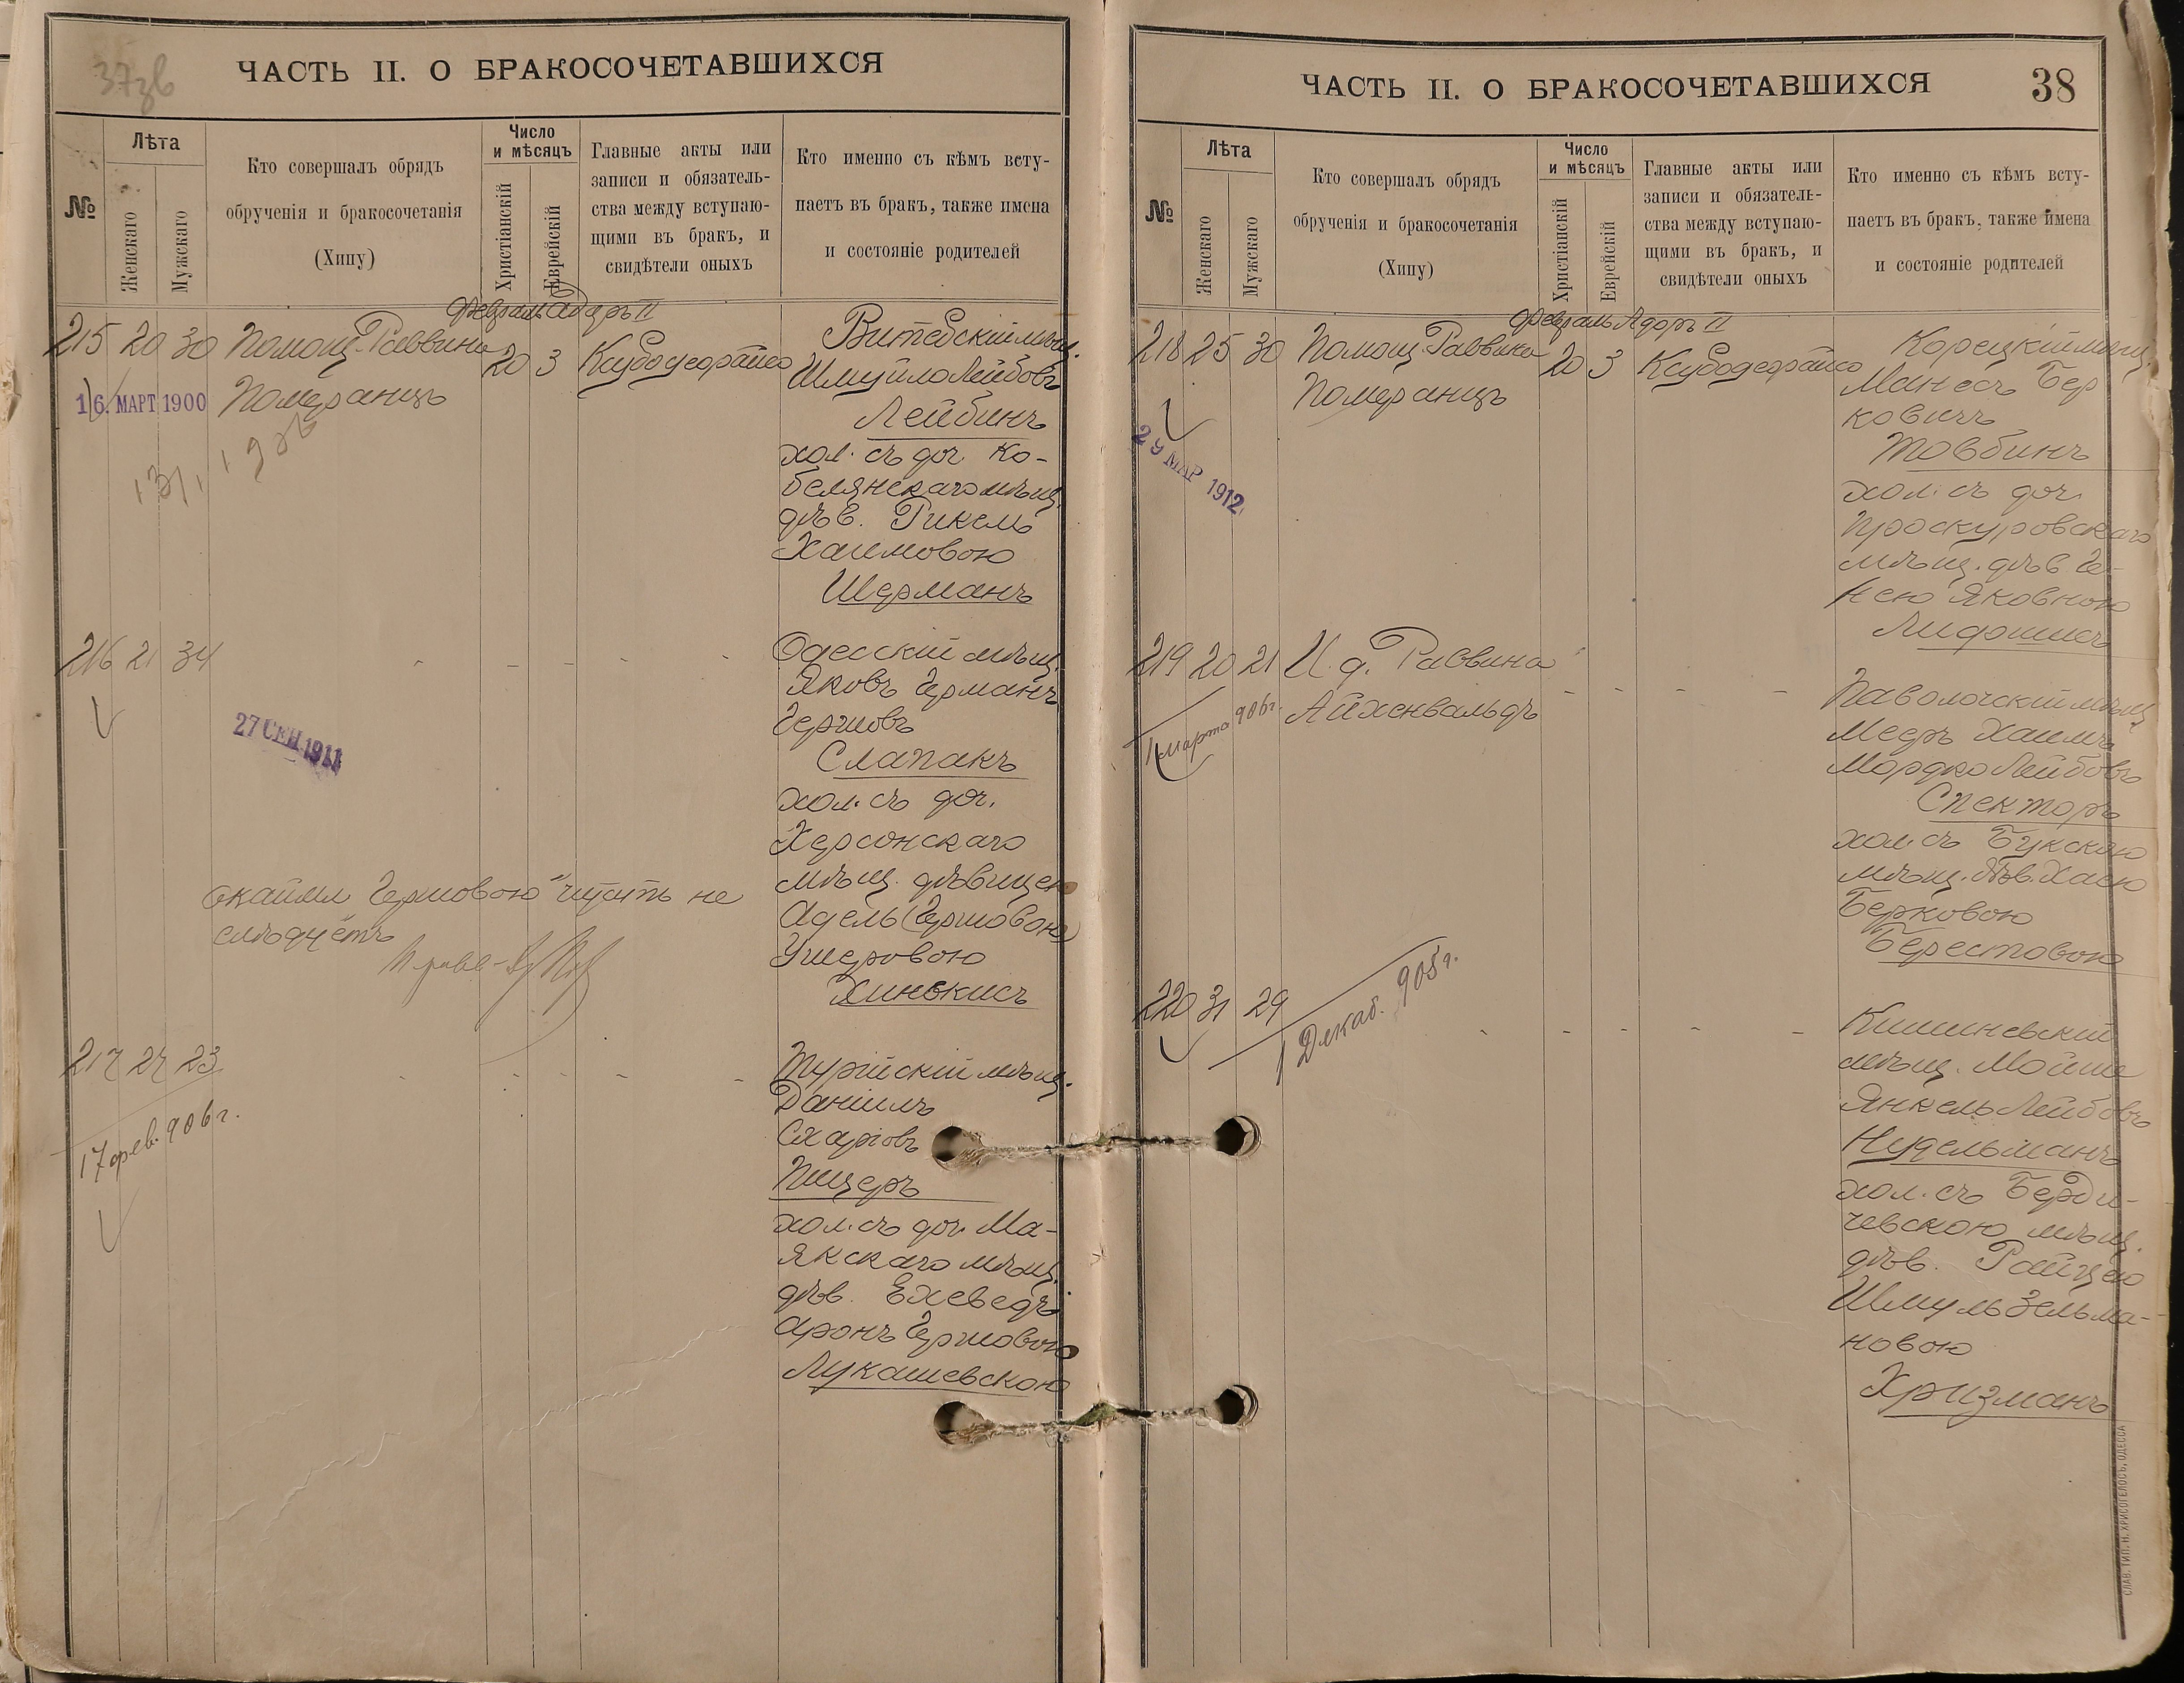 37зв
ЧАСТЬ II. О БРАКОСОЧЕТАВШИХСЯ
№
Лѣта
Женскаго
Мужскаго
Кто совершалъ обрядъ
обрученія и бракосочетанія
(Хипу)
Число
и мѣсяцъ
Христіанскій
Еврейскій
Главные акты или
записи и обязатель-
ства между вступаю-
щими въ бракъ, и
свидѣтели оныхъ
Кто именно съ кѣмъ всту-
паетъ въ бракъ, также имена
и состояніе родителей
Февраль Адаръ II
215 20 30 Помощ. Раввина 20 3
Померанцъ
16. МАРТ 1900
Витебскій мѣщ.
Шмуйло Лейбовъ
Лейбинъ
хол. съ доч. Ко-
белянскаго мѣщ.
дѣв. Рикель
Хаимовою
Шерманъ
216 21 34 - - - -
27 СЕН 1911
Одесскій мѣщ.
Яковъ Германъ
Гершовъ
Слапакъ
хол. съ доч.
Херсонскаго
мѣщ. дѣвицею
Адель (Гершовою)
Ушеровою
Хинкисъ
Гершовою" читать не
слѣдуетъ
217 27 23 - - - - -
17 фев. 906 г.
Турійскій мѣщ.
Даніилъ
Пицеръ
хол. съ доч. Ма-
якскаго мѣщ.
дѣв. Ехеведъ
Аронъ Гершовою
Лукашевскою
ЧАСТЬ II. О БРАКОСОЧЕТАВШИХСЯ
38
№
Лѣта
Женскаго
Мужскаго
Кто совершалъ обрядъ
обрученія и бракосочетанія
(Хипу)
Число
и мѣсяцъ
Христіанскій
Еврейскій
Главные акты или
записи и обязатель-
ства между вступаю-
щими въ бракъ, и
свидѣтели оныхъ
Кто именно съ кѣмъ всту-
паетъ въ бракъ, также имена
и состояніе родителей
Февраль Адаръ II
218 25 30 Помощ. Раввина 20 3
Померанцъ
29 МАР 1912
Корецкій мѣщ.
Манесъ Бер
ковичъ
Товбинъ
хол. съ доч.
Проскуровскаго
мѣщ. дѣв. Ге-
нею Яковною
Лифшисъ
219 20 21 И. д. Раввина - - - -
Айхенвальдъ
1 марта 906 г.
Паволочскій мѣщ.
Мееръ Хаимъ
Мордко Лейбовъ
Спекторъ
хол. съ Букскою
мѣщ. дѣв. Хаею
Берковою
Берестовою
220 31 29 - - - - -
1 Декаб. 905 г.
Кишиневскій
мѣщ. Мойше
Янкель Лейбовъ
Нудельманъ
хол. съ Берди-
чевскою мѣщ.
дѣв. Рейзею
Шмуль Зельма-
новою
Хризманъ
СЛАВ. ТИП. Н. ХРИСОГЕЛОСЪ, ОДЕССА